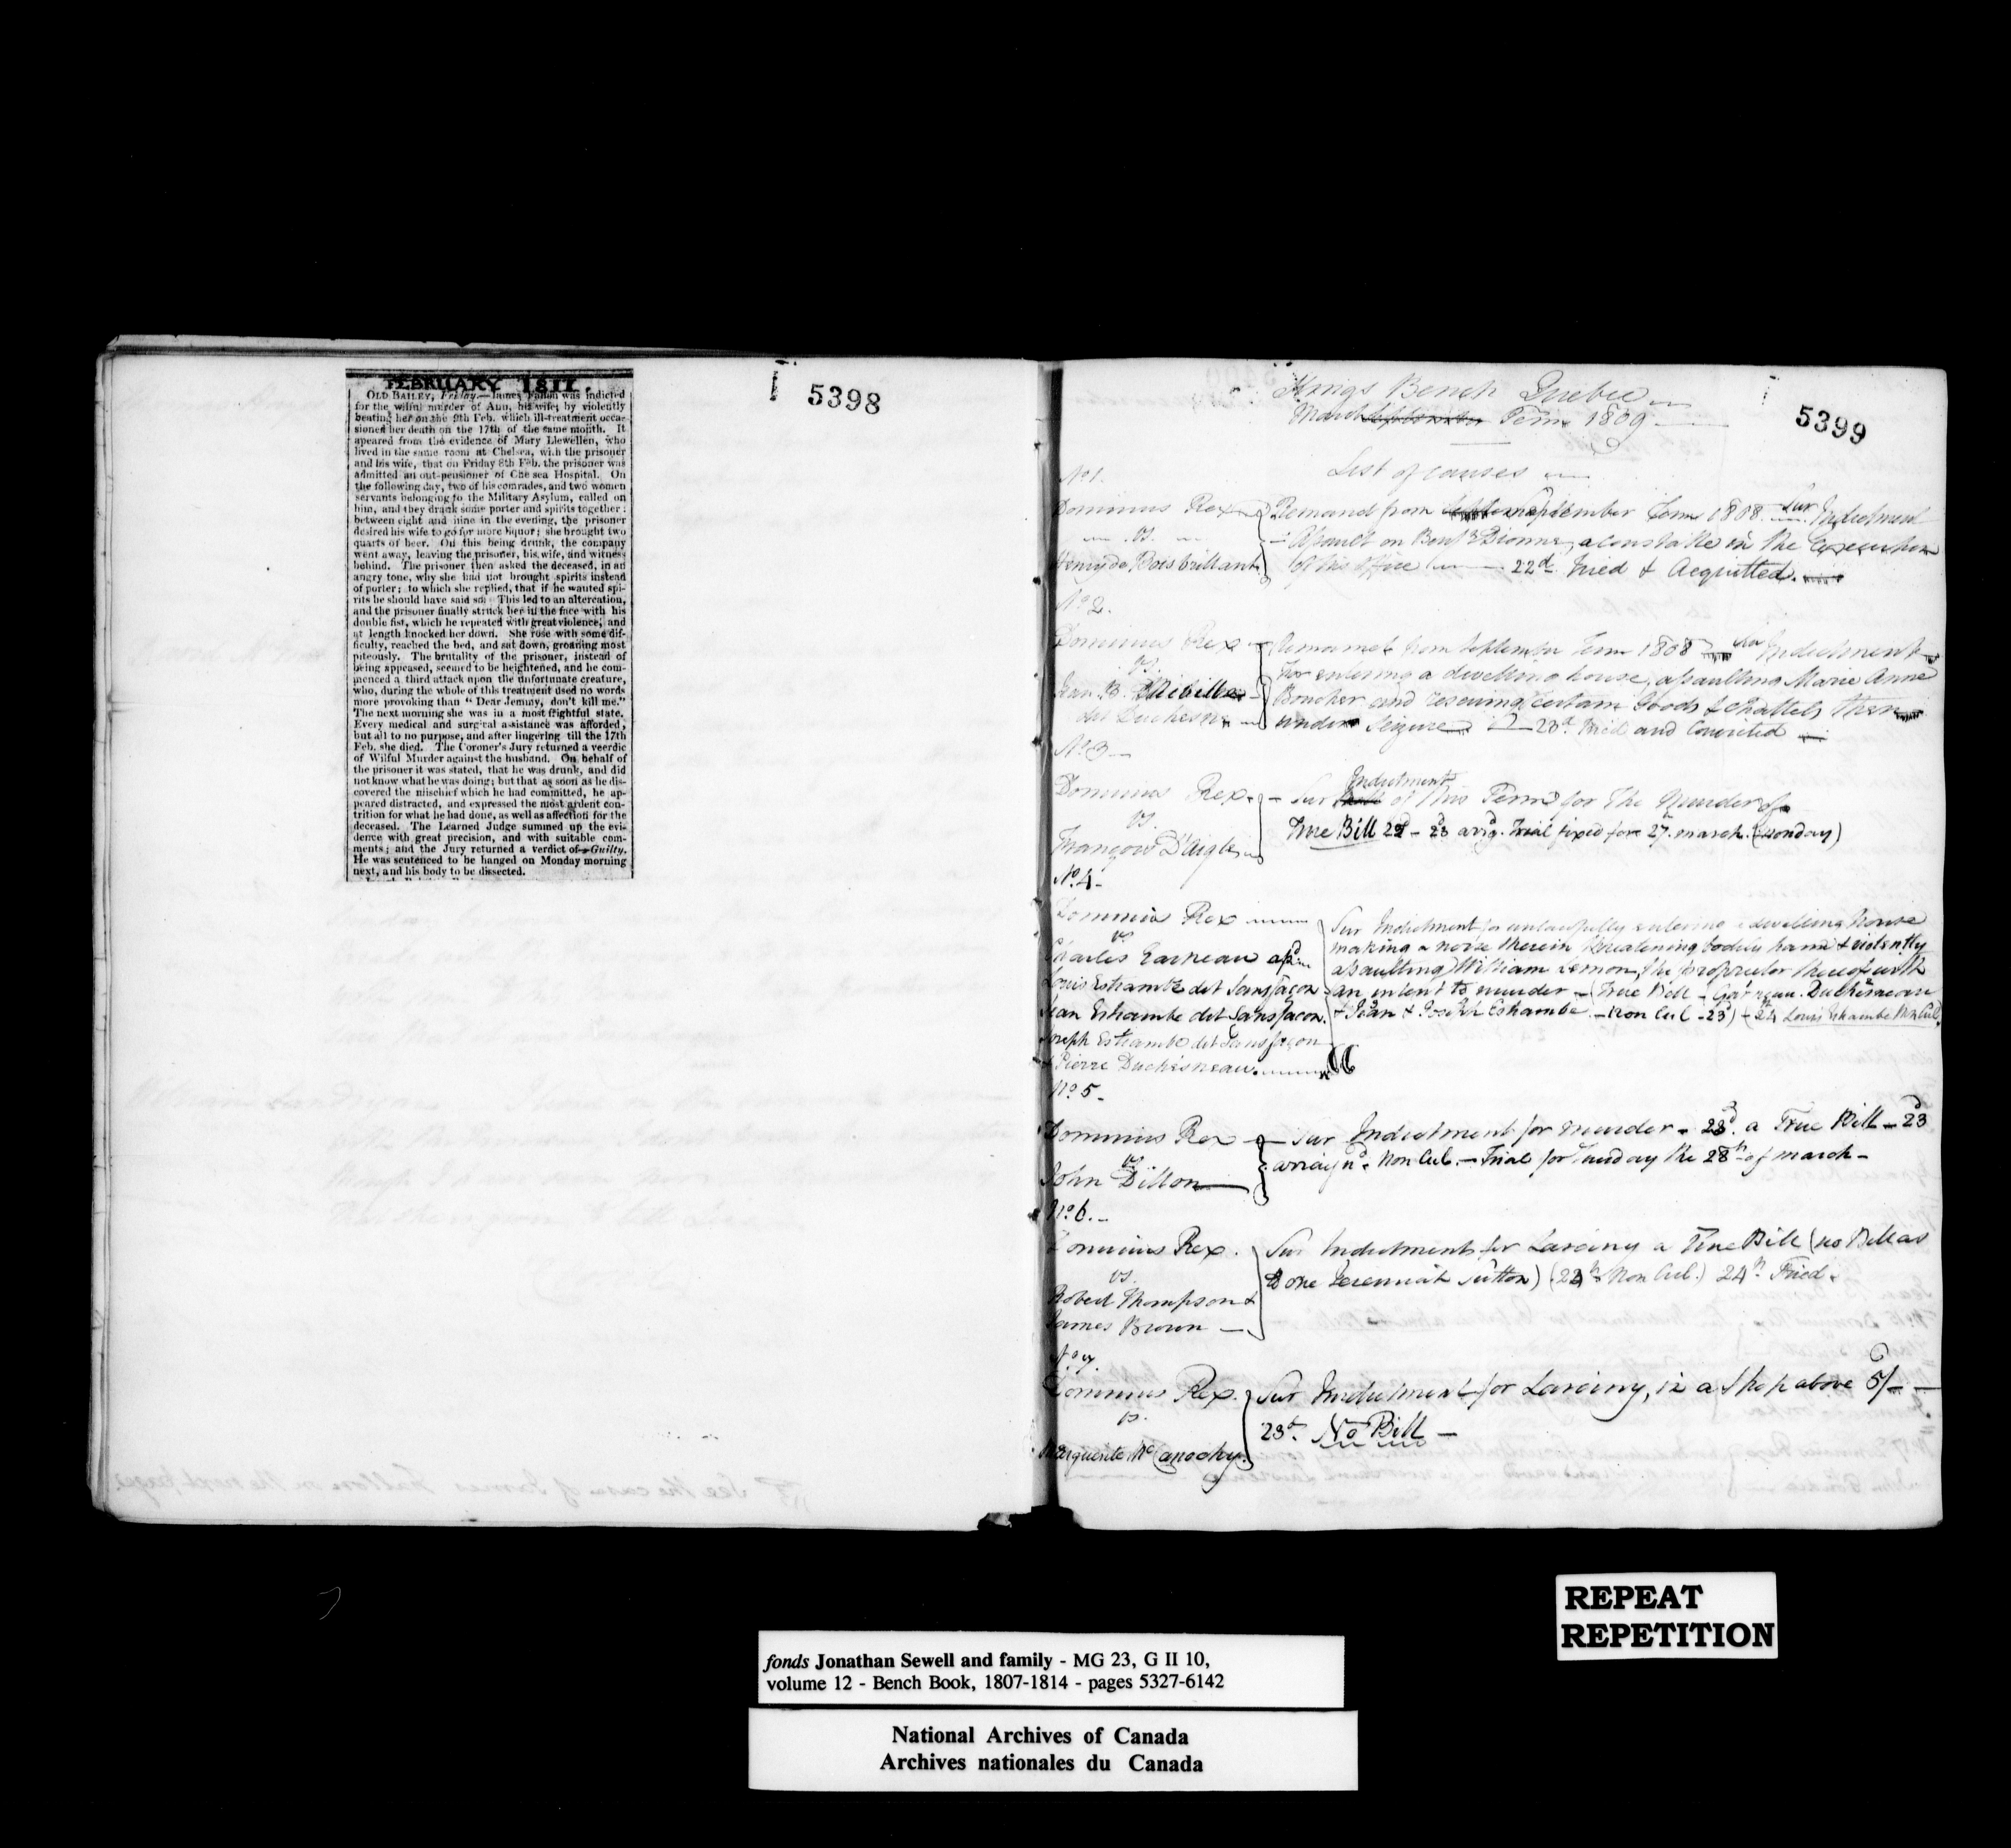 FEBRUARY 1811.
OLD BAILEY, Friday.—James Fallan was indicted
for the wilful murder of Ann, his wife, by violently
beating her on the 9th Feb. which ill-treatment occa-
sioned her death on the 17th of the same month. It
apeared from the evidence of Mary Llewellen, who
lived in the same room at Chelsea, with the prisoner
and his wife, that on Friday 8th Feb. the prisoner was
admitted an out-pensioner of Chelsea Hospital. On
the following day, two of his comrades, and two women
servants belonging to the Military Asylum, called on
him, and they drank some porter and spirits together:
between eight and nine in the evening, the prisoner
desired his wife to go for more liquor; she brought two
quarts of beer. On this being drunk, the company
went away, leaving the prisoner, his wife, and witness
behind. The prisoner then asked the deceased, in an
angry tone, why she had not brought spirits instead
of porter; to which she replied, that if he wanted spi-
rits he should have said so. This led to an altercation,
and the prisoner finally struck her in the face with his
double fist, which he repeated with great violence, and
at length knocked her down. She rose with some dif-
ficulty, reached the bed, and sat down, groaning most
piteously. The brutality of the prisoner, instead of
being appeased, seemed to be heightened, and he com-
menced a third attack upon the unfortunate creature,
who, during the whole of this treatment used no words
more provoking than "Dear Jemmy, don't kill me."
The next morning she was in a most frightful state.
Every medical and surgical assistance was afforded,
but all to no purpose, and after lingering till the 17th
Feb. she died. The Coroner's Jury returned a veerdic
of Wilful Murder against the husband. On behalf of
the prisoner it was stated, that he was drunk, and did
not know what he was doing; but that as soon as he dis-
covered the mischief which he had committed, he ap-
peared distracted, and expressed the most ardent con-
trition for what he had done, as well as affection for the
deceased. The Learned Judge summed up the evi-
dence with great precision, and with suitable com-
ments; and the Jury returned a verdict of—Guilty.
He was sentenced to be hanged on Monday morning
next, and his body to be dissected.
5398
5399
Kings Bench Quebec
March Term 1809
List of causes
No 1.
Dominus Rex
vs.
Henry de Boisbrillant
Remand from September Term 1808. Sur Indictment
Assault on Benj. Dionne, a constable in the execution
of his office 22d Tried & Acquitted.
No 2.
Dominus Rex
vs.
Jean B.
dit Duchesne
from September Term 1808 Indictment
For entering a dwelling house, assaulting Marie Anne
Boucher and rescuing certain Goods & Chattels then
under Seizure 23d Tried and Convicted
No 3
Dominus Rex
vs.
François D'aigle
Sur Indictment of this Term for The Murder of
True Bill 22d - 23 arrig. Trial fixed for 27. march. (Monday)
No. 4-
Dominus Rex
vs
Charles Garneau
Louis Estiambe dit Sansfaçon
Jean Estiambe dit Sansfaçon.
Joseph Estiambe dit Sansfaçon
& Pierre Duchesneau.
Sur Indictment for unlawfully entering a dwelling house
making a noise therein threatening bodily harm & violently
assaulting William Lemon, the proprietor thereof with
an intent to murder - (True Bill - Garneau. Duchesneau
& Jean & Joseph Estiambe - Non Cul - 23d) - 24 Louis Estiambe Non Cul.
No. 5-
Dominus Rex
vs
John Dillon
Sur Indictment for Murder - 23d. a True Bill - 23d
arraign'd. Non Cul. - Trial for Tuesday the 28th of march -
No. 6.-
Dominus Rex.
vs.
Robert Thompson &
James Brown
Sur Indictment for Larciny a True Bill (no Bill as
to one Jeremiah Sutton) (Non Cul.) 24th Tried.
No. 7.
Dominus Rex.
vs.
Marguerite McCanochy.
Sur Indictment for Larciny, in a Shop above 5/-
23d. No Bill -
REPEAT
REPETITION
fonds Jonathan Sewell and family - MG 23, G II 10,
volume 12 - Bench Book, 1807-1814 - pages 5327-6142
National Archives of Canada
Archives nationales du Canada